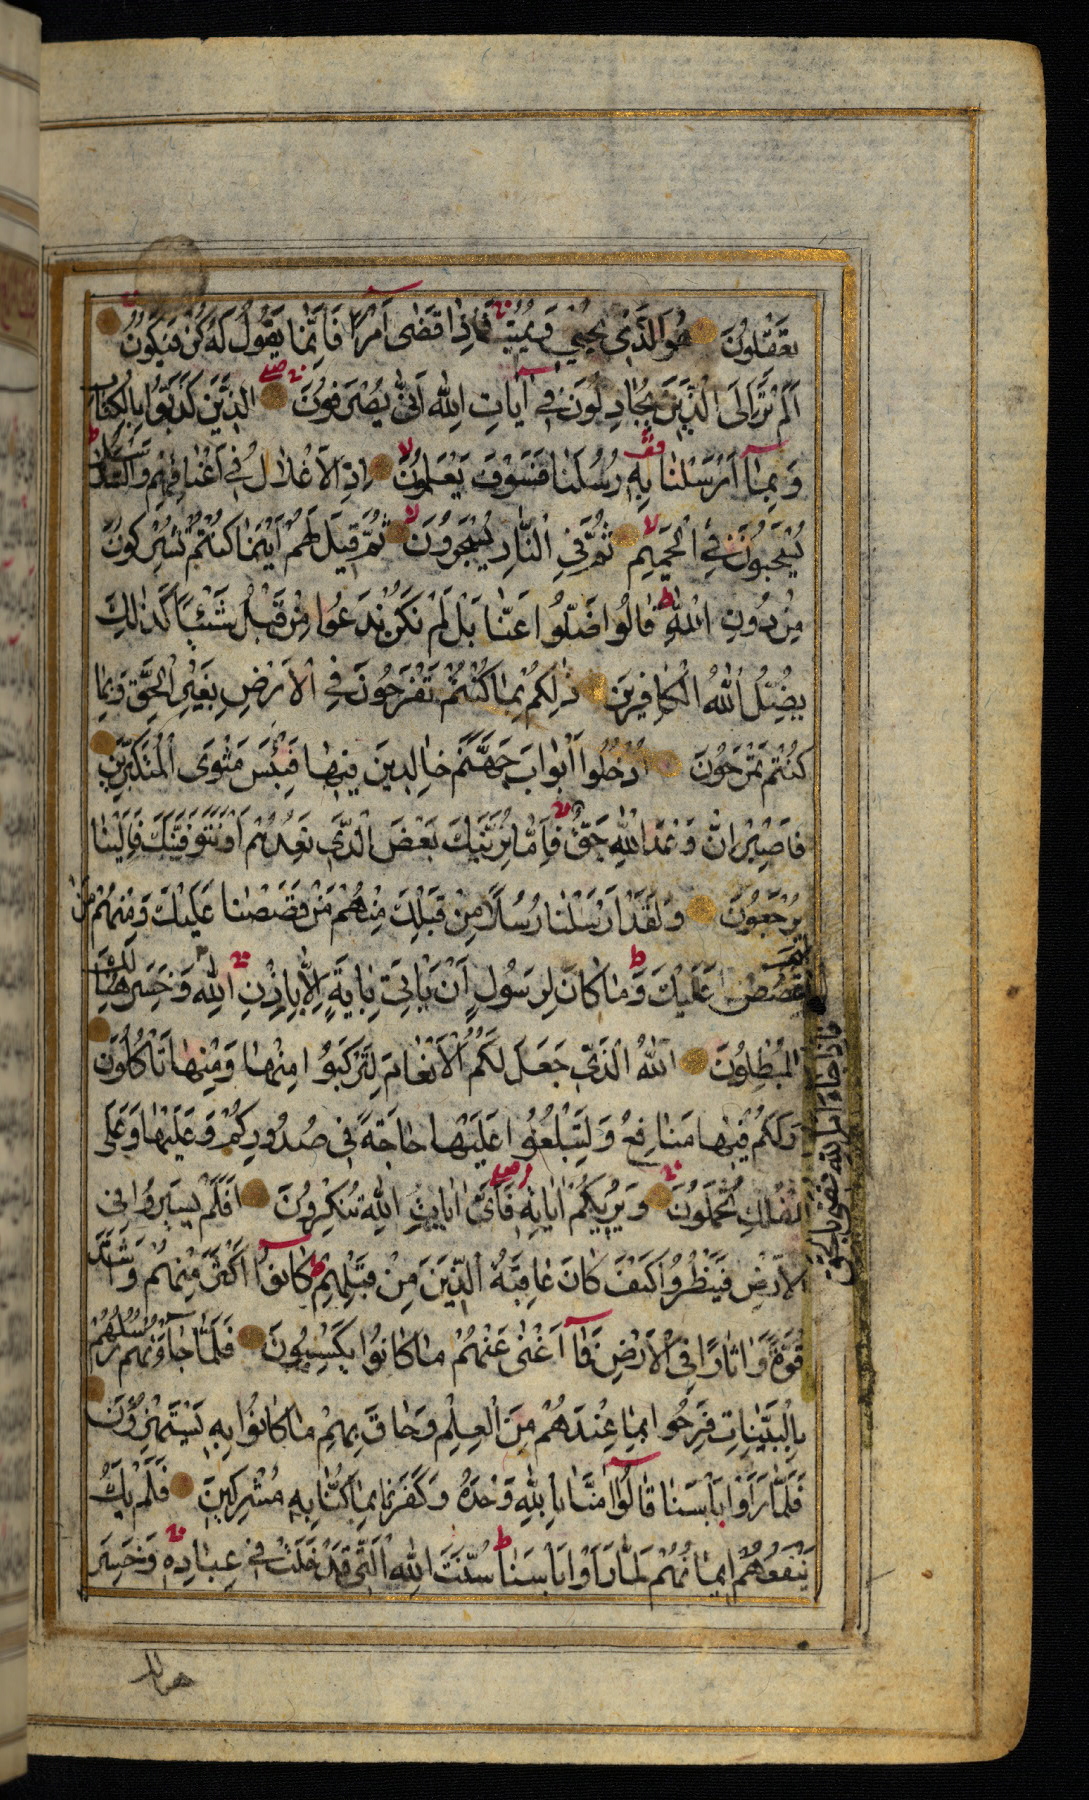 تَعْقِلُونَ هُوَ الَّذِي يُحْيِي وَيُمِيتُ فَإِذَا قَضَى أَمْرًا فَإِنَّمَا يَقُولُ لَهُ كُنْ فَيَكُونُ
أَلَمْ تَرَ إِلَى الَّذِينَ يُجَادِلُونَ فِي آيَاتِ اللَّهِ أَنَّى يُصْرَفُونَ الَّذِينَ كَذَّبُوا بِالْكِتَابِ
وَبِمَا أَرْسَلْنَا بِهِ رُسُلَنَا فَسَوْفَ يَعْلَمُونَ إِذِ الْأَغْلَالُ فِي أَعْنَاقِهِمْ وَالسَّلَاسِلُ
يُسْحَبُونَ فِي الْحَمِيمِ ثُمَّ فِي النَّارِ يُسْجَرُونَ ثُمَّ قِيلَ لَهُمْ أَيْنَمَا كُنْتُمْ تُشْرِكُونَ
مِنْ دُونِ اللَّهِ قَالُوا ضَلُّوا عَنَّا بَلْ لَمْ نَكُنْ نَدْعُوا مِنْ قَبْلُ شَيْئًا كَذَلِكَ
يُضِلُّ اللَّهُ الْكَافِرِينَ ذَلِكُمْ بِمَا كُنْتُمْ تَفْرَحُونَ فِي الْأَرْضِ بِغَيْرِ الْحَقِّ وَبِمَا
كُنْتُمْ تَمْرَحُونَ ادْخُلُوا أَبْوَابَ جَهَنَّمَ خَالِدِينَ فِيهَا فَبِئْسَ مَثْوَى الْمُتَكَبِّرِينَ
فَاصْبِرْ إِنَّ وَعْدَ اللَّهِ حَقٌّ فَإِمَّا نُرِيَنَّكَ بَعْضَ الَّذِي نَعِدُهُمْ أَوْ نَتَوَفَّيَنَّكَ فَإِلَيْنَا
يُرْجَعُونَ وَلَقَدْ أَرْسَلْنَا رُسُلًا مِنْ قَبْلِكَ مِنْهُمْ مَنْ قَصَصْنَا عَلَيْكَ وَمِنْهُمْ مَنْ
لَمْ نَقْصُصْ عَلَيْكَ وَمَا كَانَ لِرَسُولٍ أَنْ يَأْتِيَ بِآيَةٍ إِلَّا بِإِذْنِ اللَّهِ وَخَسِرَ هُنَالِكَ
فَإِذَا جَاءَ أَمْرُ اللَّهِ قُضِيَ بِالْحَقِّ
الْمُبْطِلُونَ اللَّهُ الَّذِي جَعَلَ لَكُمُ الْأَنْعَامَ لِتَرْكَبُوا مِنْهَا وَمِنْهَا تَأْكُلُونَ
وَلَكُمْ فِيهَا مَنَافِعُ وَلِتَبْلُغُوا عَلَيْهَا حَاجَةً فِي صُدُورِكُمْ وَعَلَيْهَا وَعَلَى
الْفُلْكِ تُحْمَلُونَ وَيُرِيكُمْ آيَاتِهِ فَأَيَّ آيَاتِ اللَّهِ تُنْكِرُونَ أَفَلَمْ يَسِيرُوا فِي
الْأَرْضِ فَيَنْظُرُوا كَيْفَ كَانَ عَاقِبَةُ الَّذِينَ مِنْ قَبْلِهِمْ كَانُوا أَكْثَرَ مِنْهُمْ وَأَشَدَّ
قُوَّةً وَآثَارًا فِي الْأَرْضِ فَمَا أَغْنَى عَنْهُمْ مَا كَانُوا يَكْسِبُونَ فَلَمَّا جَاءَتْهُمْ رُسُلُهُمْ
بِالْبَيِّنَاتِ فَرِحُوا بِمَا عِنْدَهُمْ مِنَ الْعِلْمِ وَحَاقَ بِهِمْ مَا كَانُوا بِهِ يَسْتَهْزِؤُنَ
فَلَمَّا رَأَوْا بَأْسَنَا قَالُوا آمَنَّا بِاللَّهِ وَحْدَهُ وَكَفَرْنَا بِمَا كُنَّا بِهِ مُشْرِكِينَ فَلَمْ يَكُ
يَنْفَعُهُمْ إِيمَانُهُمْ لَمَّا رَأَوْا بَأْسَنَا سُنَّتَ اللَّهِ الَّتِي قَدْ خَلَتْ فِي عِبَادِهِ وَخَسِرَ
هنالك